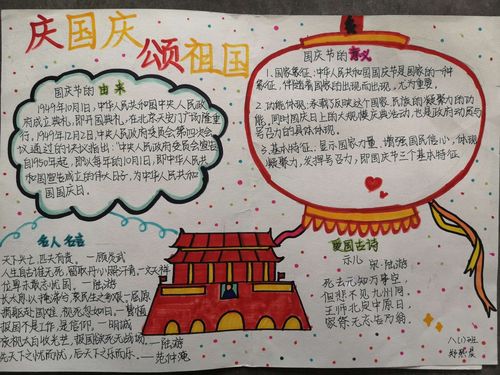 庆国庆
颂祖国
国庆节的由来
1949年10月1日,中华人民共和国中央人民政
府成立典礼,即开国典礼,在北京天安门广场隆重
行,1949年12月2日,中央人民政府委员会第四次会
议通过的决议指出:"中央人民政府委员会宣告
自1950年起,即以每年的10月1日,即中华人民共
和国宣告成立的伟大日子,为中华人民共和
国国庆日.
国庆节的意义
1.国家象征,中华人民共和国国庆节是国家的一种
象征,伴随着国家的出现而出现,尤为重要
2.功能体现,承载了反映这个国家民族的凝聚力的功
能,同时国庆日上的大规模庆典活动也是政府动员与
号召力的具体体现.
3.基本特征,显示国家力量,增强国民信心,体现
凝聚力,发挥号召力,即国庆节三个基本特征
名人名言
天下兴亡,匹夫有责。一顾炎武
人生自古谁无死,留取丹心照汗青.一文天祥
位卑未敢忘忧国.一陆游
长太息以掩涕兮,哀民生之多艰一屈原
捐躯赴国难,视死忽如归.一曹植
报国不是工作,是信仰.一
哀视大白收光芒,报国欲死无战场.一陆游
先天下之忧而忧,后天下之乐而乐.一范仲淹
爱国古诗
示儿 宋·陆游
死去元知万事空,
但悲不见九州同.
王师北定中原日,
家祭无忘告乃翁.
八(1)班